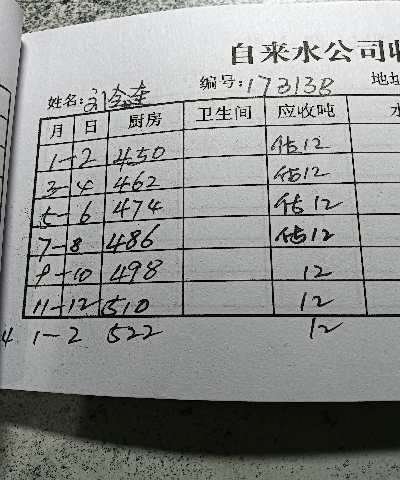 自来水公司收
姓名: 刘金奎 编号: 173138 地址
月 日 厨房 卫生间 应收吨 水
1-2 450 估12
3-4 462 估12
5-6 474 估12
7-8 486 估12
9-10 498 12
11-12 510 12
4 1-2 522 12